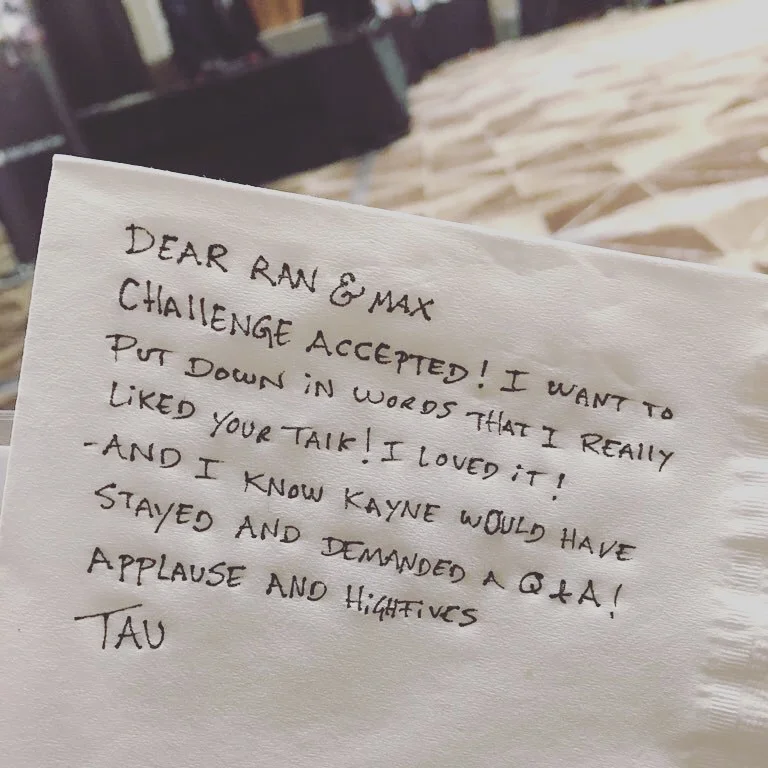 DEAR RAN & MAX
CHALLENGE ACCEPTED! I WANT TO
PUT DOWN IN WORDS THAT I REALLY
LIKED YOUR TALK! I LOVED IT!
-AND I KNOW KAYNE WOULD HAVE
STAYED AND DEMANDED A Q&A!
APPLAUSE AND HIGHFIVES
TAU